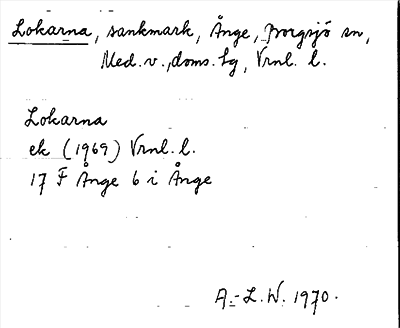 Lokarna, sankmark, Ånge, Borgsjö sn,
Med. v., doms. lg, Vrnl. l.
Lokarna
ek (1969) Vrnl. l.
17 F Ånge 6 i Ånge
A.-L.W. 1970.